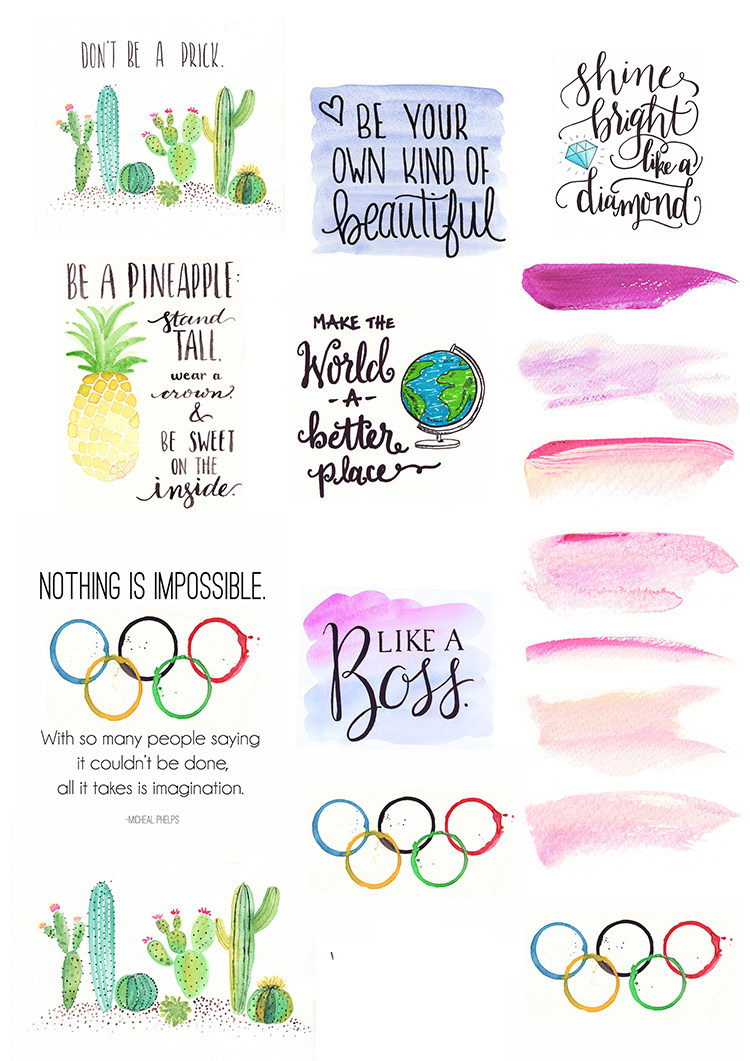 DON'T BE A PRICK.
BE YOUR
OWN KIND OF
beautiful
shine
bright
like a
diamond
BE A PINEAPPLE:
stand
TALL,
wear a
crown,
&
BE SWEET
ON THE
inside.
MAKE THE
World
-A-
better
place
NOTHING IS IMPOSSIBLE.
With so many people saying
it couldn't be done,
all it takes is imagination.
-MICHEAL PHELPS
LIKE A
BOSS.